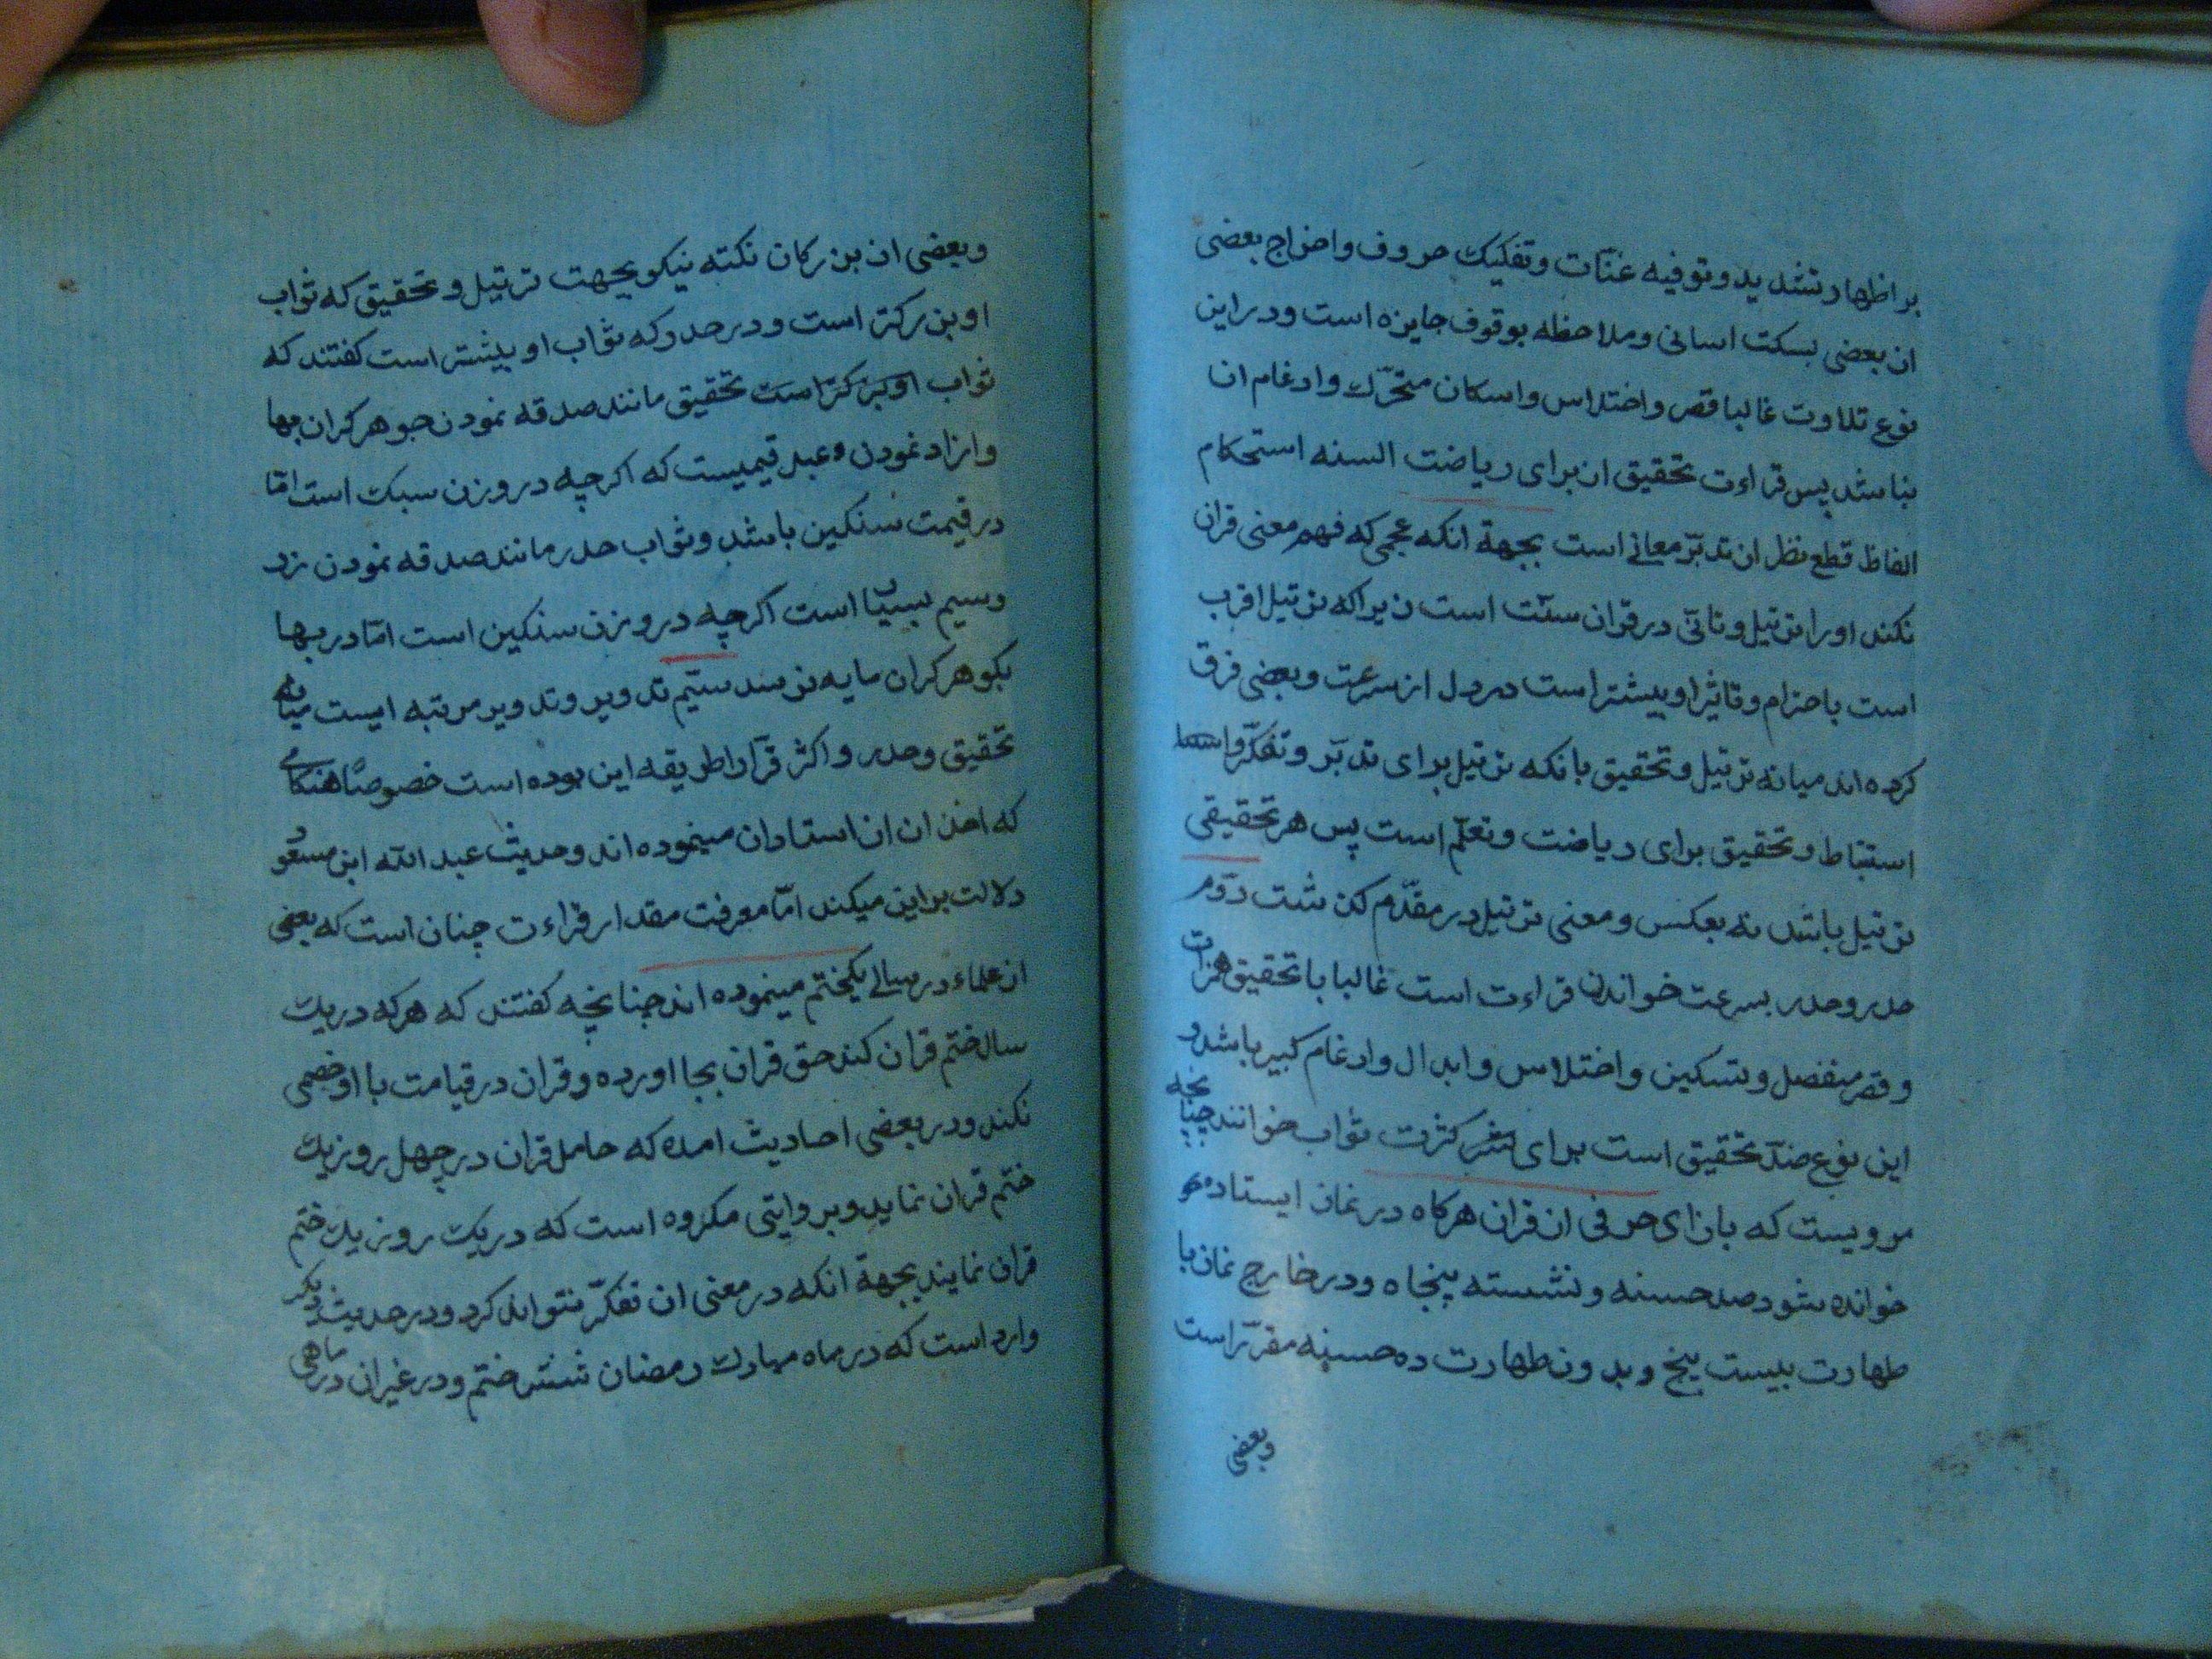 بر اظهار تشدید و توفیه غنّات و تفکیک حروف و اخراج بعضی
از بعضی بسکت اسانی و ملاحظه بوقوف جایزه است و در این
نوع تلاوت غالبا قصر و اختلاس و اسکان متحرّک و ادغام ان
نباشد پس قراءت تحقیق از برای ریاضت السنه استحکام
الفاظ قطع نظر از تدبّر معانی است بجهة انکه عجمی که فهم معنی قران
نکند او را ترتیل و تانّی در قران سنّت است زیرا که ترتیل اقرب
است باحترام و تاثیر او بیشتر است در دل از سرعت و بعضی فرق
کرده اند میانه ترتیل و تحقیق بانکه ترتیل برای تدبّر و تفکّر و
استنباط و تحقیق برای ریاضت و تعلّم است پس هر تحقیقی
ترتیل باشد نه بعکس و معنی ترتیل در مقدّم کذشت دوّم
حدر و حدر بسرعت خواندن قراءت است غالبا با تحقیق همزات
و قصر منفصل و تسکین و اختلاس و ابدال و ادغام کبیر باشد و
این نوع ضدّ تحقیق است برای کثرت ثواب خوانند چنانچه
مرویست که بازای حرفی از قران هرکاه در نماز ایستاده
خوانده شود صد حسنه و نشسته پنجاه و در خارج نماز با
طهارت بیست پنج و بدون طهارت ده حسنه مقرّر است
وبعضی
و بعضی از بزرکان نکته نیکو بجهت ترتیل و تحقیق که ثواب
او بزرکتر است و در حدر که ثواب او بیشتر است کفتند که
ثواب او بزرکتر است تحقیق مانند صدقه نمودن جوهر کران بها
و ازاد نمودن عبد قیمیست که اکرچه در وزن سبک است امّا
در قیمت سنکین باشد و ثواب حدر مانند صدقه نمودن زر
و سیم بسیار است اکرچه در وزن سنکین است امّا در بها
بکوهر کران مایه نرسد سیّم تدویر و تدویر مرتبه ایست میانه
تحقیق و حدر و اکثر قرّاء را طریقه این بوده است خصوصًا هنکامی
که اخذ ان از استادان مینموده اند و حدیث عبد الله ابن مسعود
دلالت بر این میکند امّا معرفت مقدار قراءت چنان است که بعضی
از علماء در سالی یکختم مینموده اند چنانچه کفتند که هر که در یک
سال ختم قران کند حق قران بجا اورده و قران در قیامت با او خصمی
نکند و در بعضی احادیث امده که حامل قران در چهل روز یک
ختم قران نماید و بروایتی مکروه است که در یک روز یک ختم
قران نمایند بجهة انکه در معنی ان تفکّر نتواند کرد و در حدیث دیکر
وارد است که در ماه مبارک رمضان شش ختم و در غیر ان در ماهی